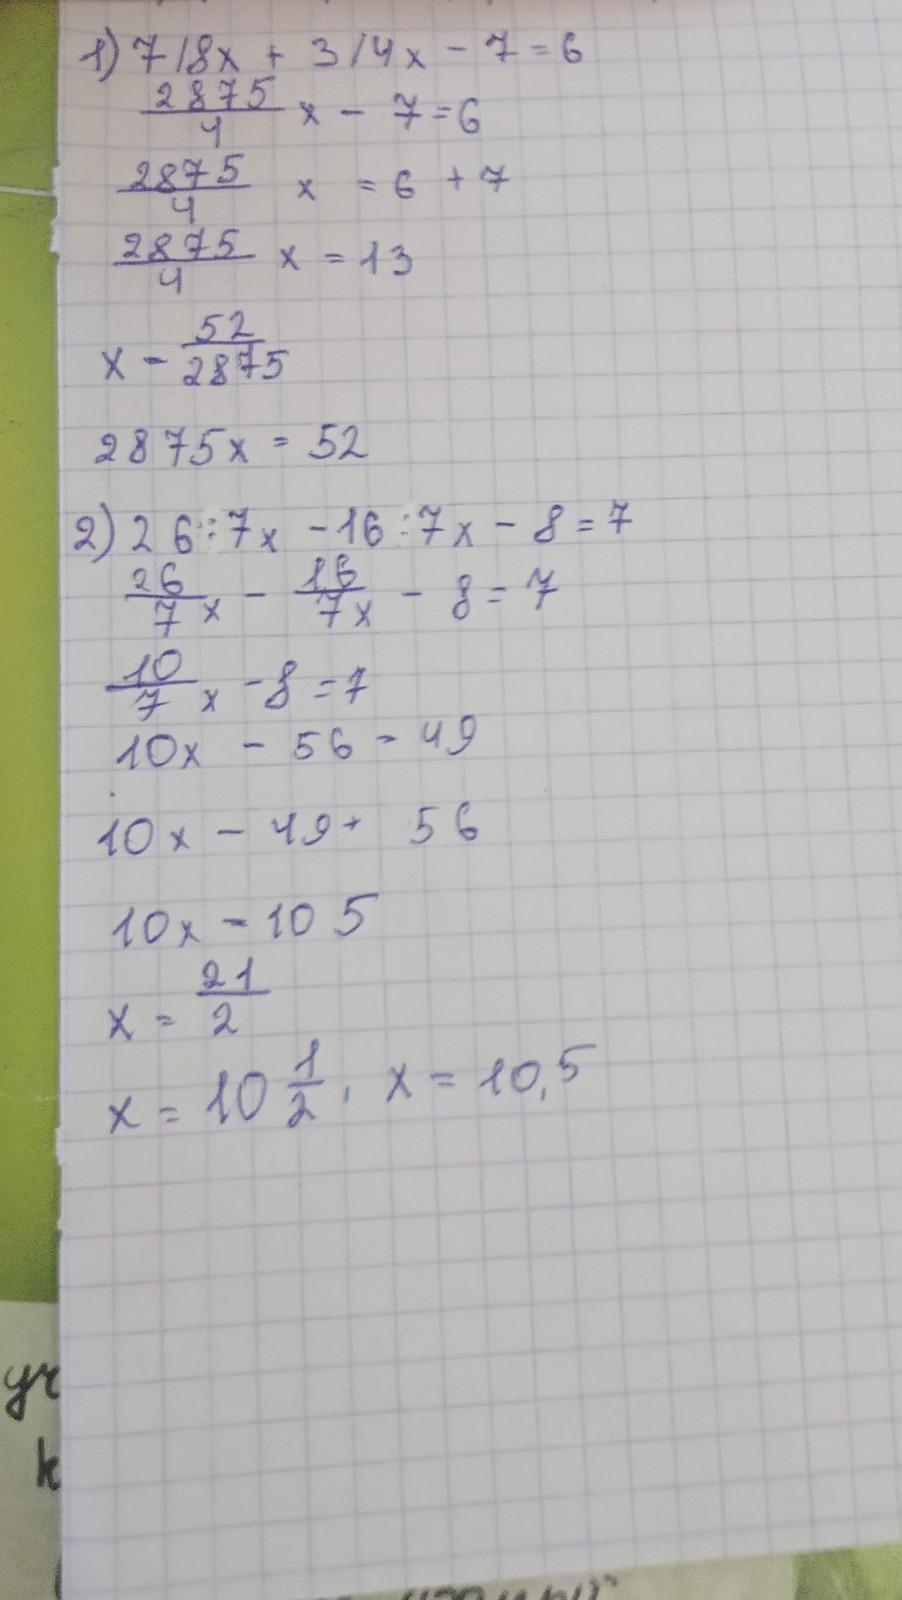 1) 7/8x + 3/4x - 7 = 6
2875/4 x - 7 = 6
2875/4 x = 6 + 7
2875/4 x = 13
x - 52/2875
2875x = 52
2) 26:7x - 16:7x - 8 = 7
26/7 x - 16/7x - 8 = 7
10/7 x - 8 = 7
10x - 56 - 49
10x - 49 + 56
10x - 105
x = 21/2
x = 10 1/2, x = 10,5